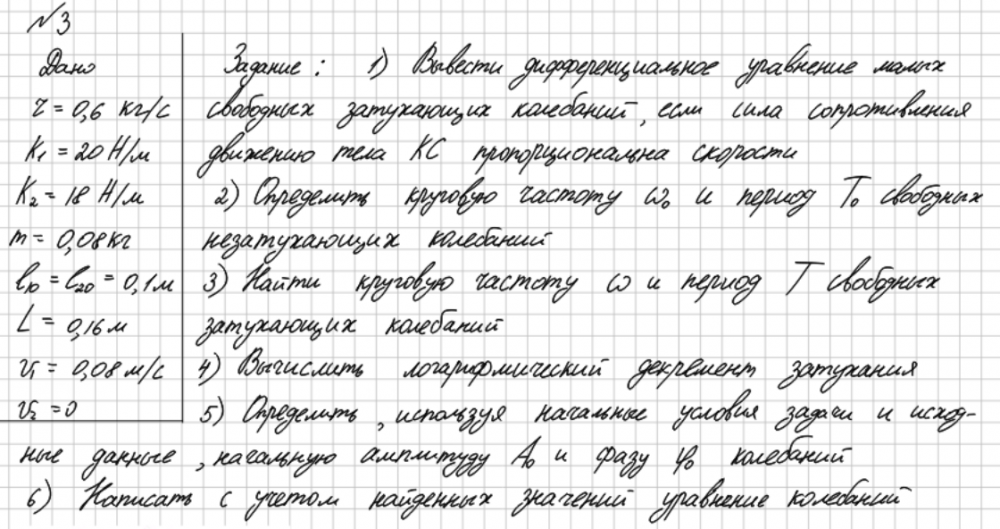 №3
Дано
Задание: 1) Вывести дифференциальное уравнение малых
r = 0,6 кг/с
свободных затухающих колебаний, если сила сопротивления
K₁ = 20 Н/м
движению тела КС пропорциональна скорости
K₂ = 18 Н/м
2) Определить круговую частоту ω₀ и период T₀ свободных
m = 0,08 кг
незатухающих колебаний
l₁₀ = l₂₀ = 0,1 м
3) Найти круговую частоту ω и период T свободных
L = 0,16 м
затухающих колебаний
v₁ = 0,08 м/с
4) Вычислить логарифмический декремент затухания
v₂ = 0
5) Определить, используя начальные условия задачи и исход-
ные данные, начальную амплитуду A₀ и фазу φ₀ колебаний
6) Написать с учетом найденных значений уравнение колебаний